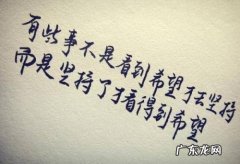 有些事不是看到希望才去坚持
而是坚持了才看得到希望
广东龙网